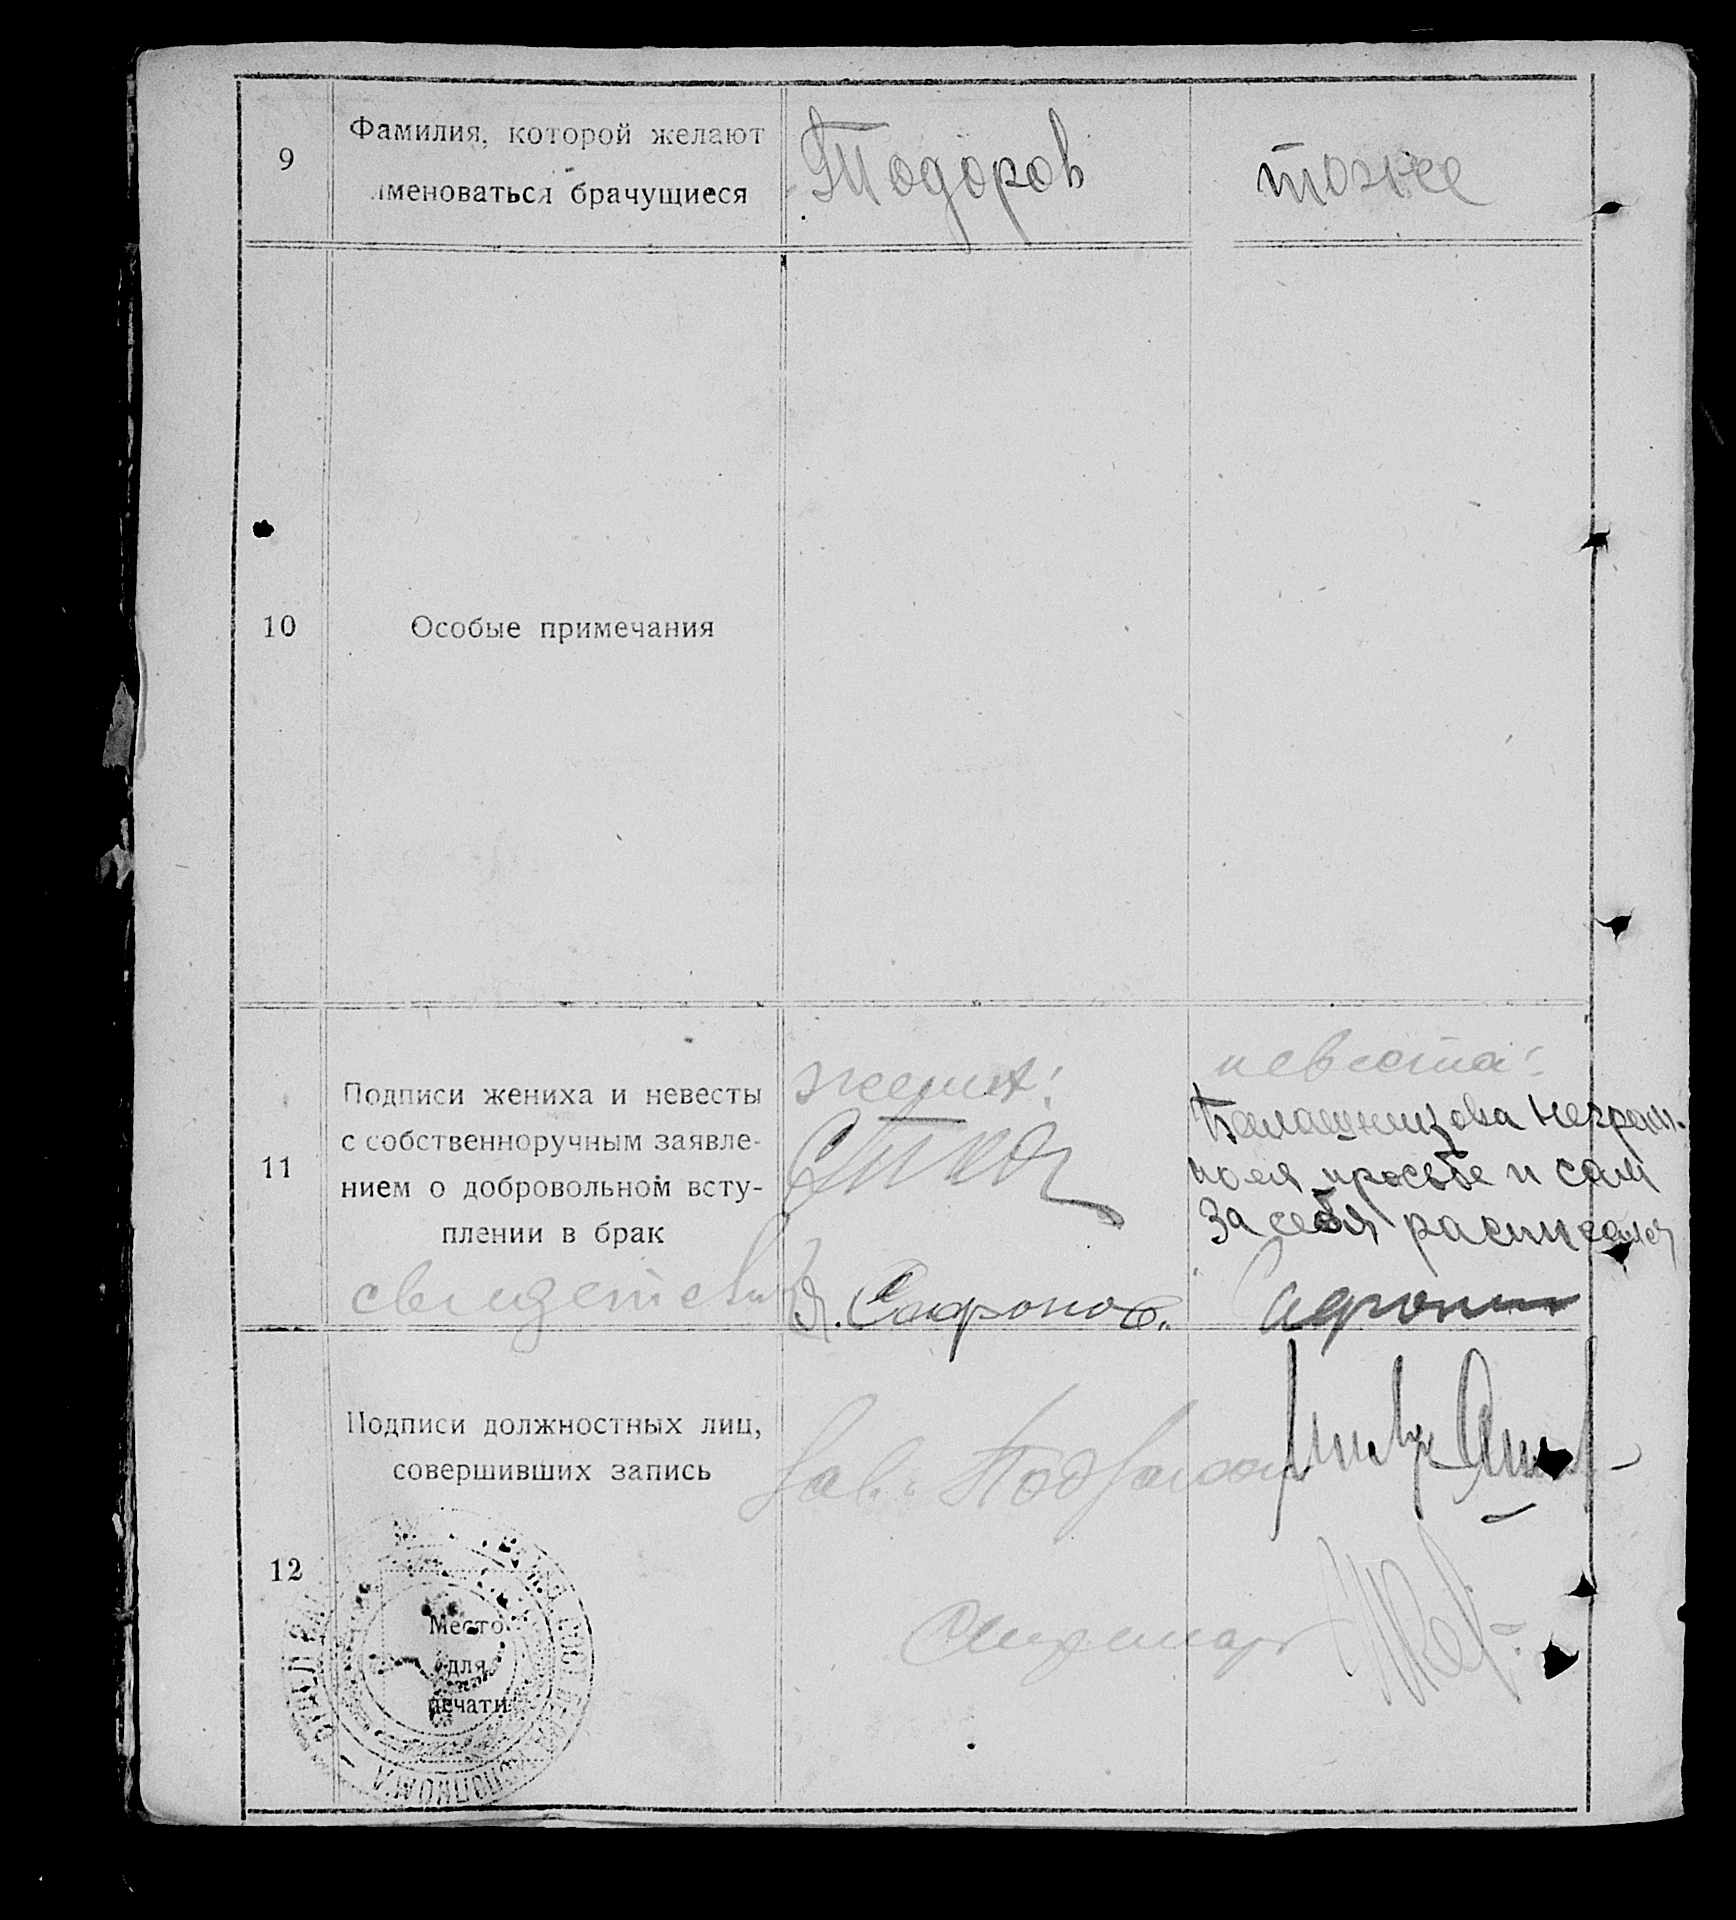 9
Фамилия, которой желают
именоваться брачущиеся
Тодоров
тоже
10
Особые примечания
11
Подписи жениха и невесты
с собственноручным заявле-
нием о добровольном всту-
плении в брак
жених:
невеста:
неграм.
ная просьбе и сам
за себя расписался
свидетели
Я. Сафронов.
12
Подписи должностных лиц,
совершивших запись
Зав.
Место
для
печати